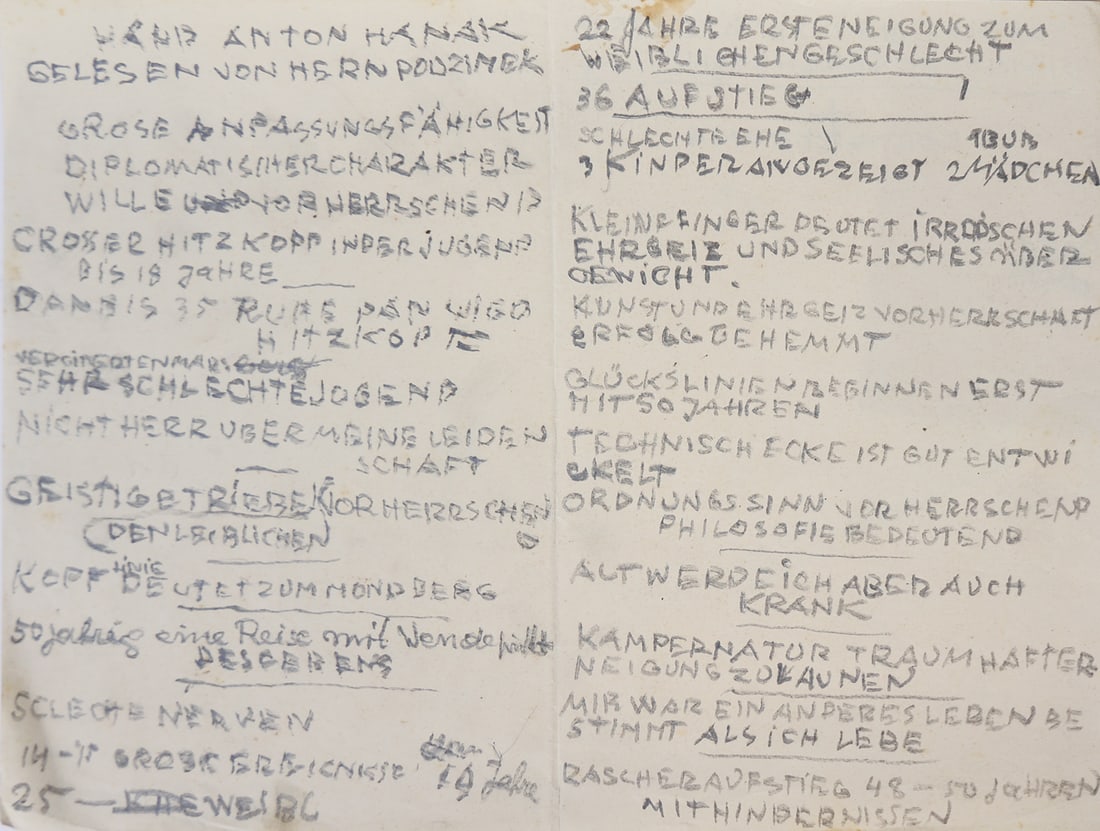 HAND ANTON HANAK
GELESEN VON HERN PODZIMEK
GROSE ANPASSUNGSFÄHIGKEIT
DIPLOMATISCHERCHARAKTER
WILLE VORHERRSCHEND
GROSER HITZKOPF INDER JUGEND
BIS 18 JAHRE
DANBIS 35 RUHE DAN WIED
HITZKOPF
SEHR SCHLECHTEJUGEND
NICHTHERR UBERMEINE LEIDEN
SCHAFT
GEISTIGETRIEBE VORHERRSCHEN
(DENLEIBLICHEN
KOPF LINIE DEUTETZUM MONDBERG
50jährig eine Reise mit Wendepunkt
DESLEBENS
SCLECHTE NERVEN
14-15 GROSE EREIGNISSE 19 Jahre
25 — WEIBL
22 JAHRE ERSTENEIGUNG ZUM
WEIBLICHENGESCHLECHT
36 AUFSTIEG
SCHLECHTEEHE 1BUB
3 KINDERANGEZEIGT 2MÄDCHEN
KLEINFINGER DEUTET IRRDISCHEN
EHRGEIZ UNDSEELISCHES ÜBER
GEWICHT.
KUNSTUNDEHRGEIZ VORHERRSCHAFT
ERFOLG GEHEMMT
GLÜCKSLINIEN BEGINNEN ERST
MIT 50 JAHREN
TECHNISCH ECKE IST GUT ENTWI
CKELT
ORDNUNGSSINN VORHERRSCHEND
PHILOSOFIE BEDEUTEND
ALT WERDE ICH ABER AUCH
KRANK
KAMPERNATUR TRAUMHAFTER
NEIGUNG ZULAUNEN
MIR WAR EIN ANDERES LEBEN BE
STIMMT ALS ICH LEBE
RASCHERAUFSTIEG 48 – 50 JAHREN
MITHINDERNISSEN